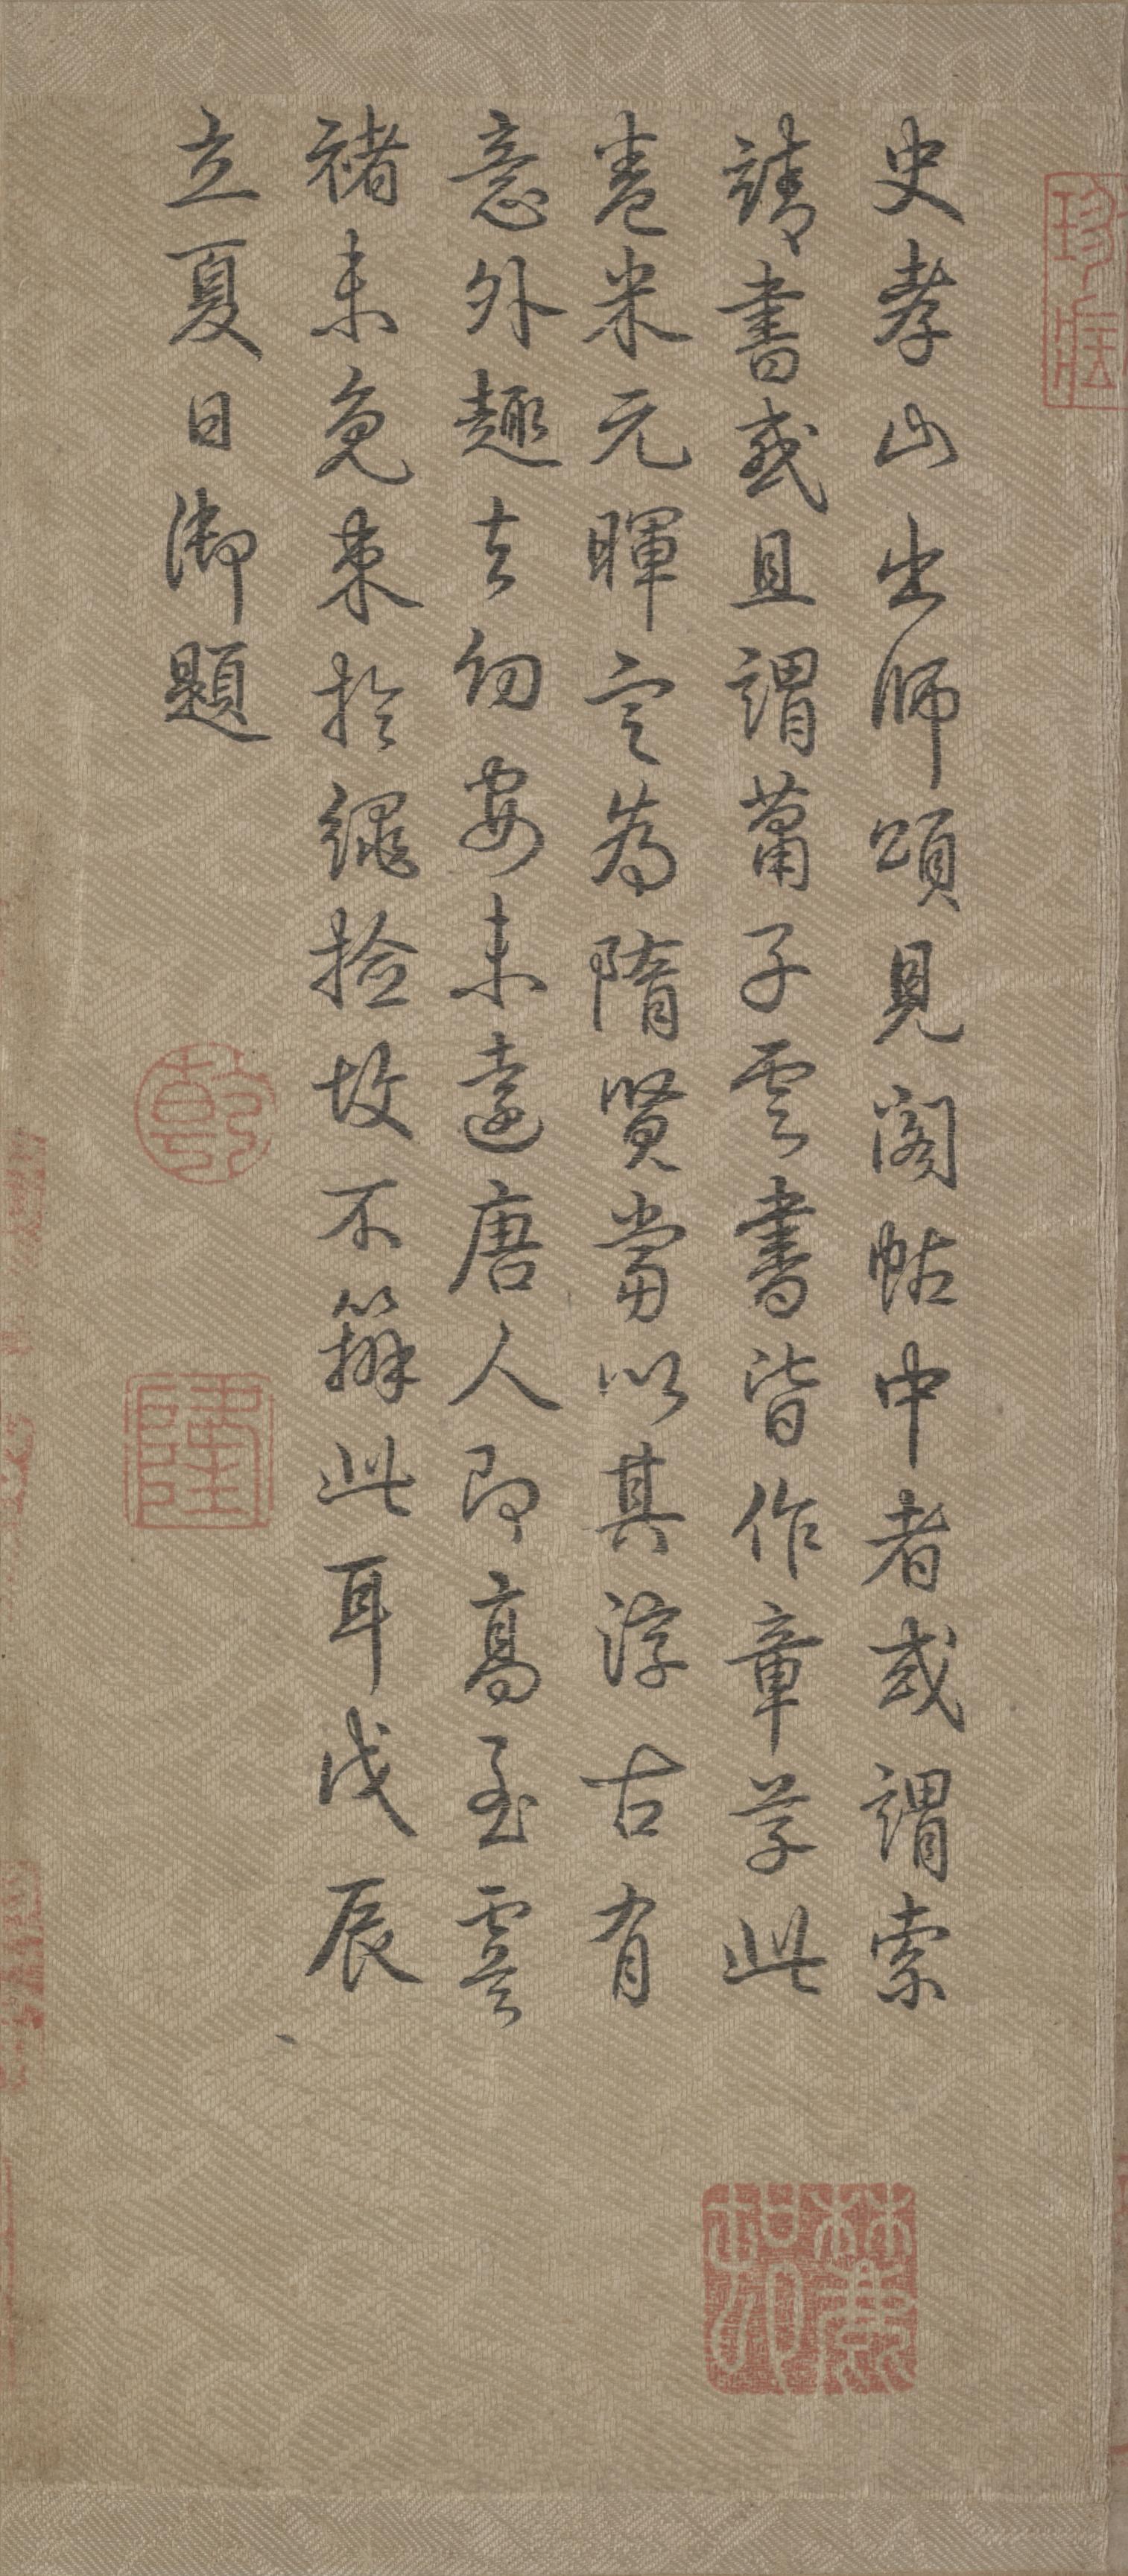 史孝山出師頌見閣帖中者或謂索
靖書或且謂蕭子雲書皆作章草此
卷米元暉定為隋賢當以其淳古有
意外趣去幼安未遠唐人即高至虞
褚未免束於繩撿故不辦此耳戊辰
立夏日御題
乾
隆